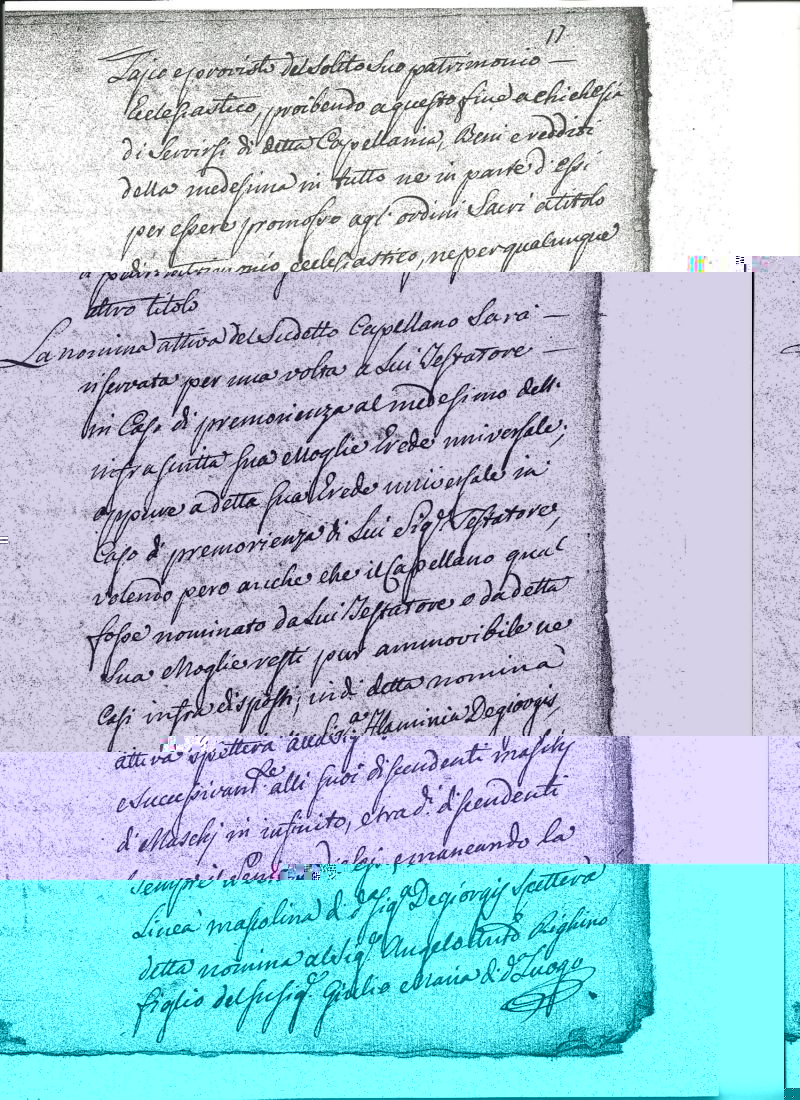 17
Laico e provisto del Solito Suo patrimonio —
Ecclesiastico, proibendo a questo fine a chichesia
di Servirsi di detta Capellania, Beni e redditi
della medesima in tutto ne in parte d'essi
per essere promosso agl'ordini Sacri a titolo
di patrimonio ecclesiastico, ne per qualunque
altro titolo
La nomina attiva del Sudetto Capellano Sara —
riservata per una volta a Lui Testatore —
in Caso di premorienza al medesimo dell'
infrascritta sua Moglie Erede universale,
oppure a detta sua Erede universale in
Caso di premorienza di Lui Sig.r Testatore,
volendo pero anche che il Capellano qual
fosse nominato da Lui Testatore o da detta
Sua Moglie resti pur ammovibile ne
Casi infra disposti; indi detta nomina
attiva spettera alla Sig.a Flaminia Degiorgis,
e successivam.te alli suoi discendenti maschj
di Maschj in infinito, e tra d.i discendenti
sempre emancando la
Linea mascolina di d.a Sig.a Degiorgis spettera
detta nomina al Sig.r Angelo Ant.o Righino
figlio del fu Sig.r Giulio Maria di d.o Luogo